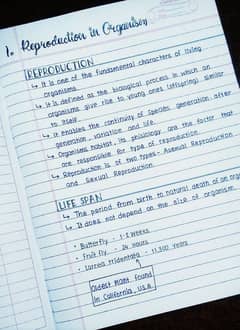 1. Reproduction in Organism
REPRODUCTION
↳ It is one of the fundamental characters of living
organisms.
↳ It is defined as the biological process in which an
organisms give rise to young ones (offspring) similar
to itself.
↳ It enables the continuity of species, generation after
generation, variation and life.
↳ Organisms habitat, its physiology are the factor that
are responsible for type of reproduction.
↳ Reproduction is of two types - Asexual Reproduction
and Sexual Reproduction.
LIFE SPAN
↳ The period from birth to natural death of an
↳ It does not depend on the size of organism.
• Butterfly - 1-2 weeks
• Fruit fly - 24 hours
• Larrea tridentata - 11,700 years
Oldest plant found
in California, USA